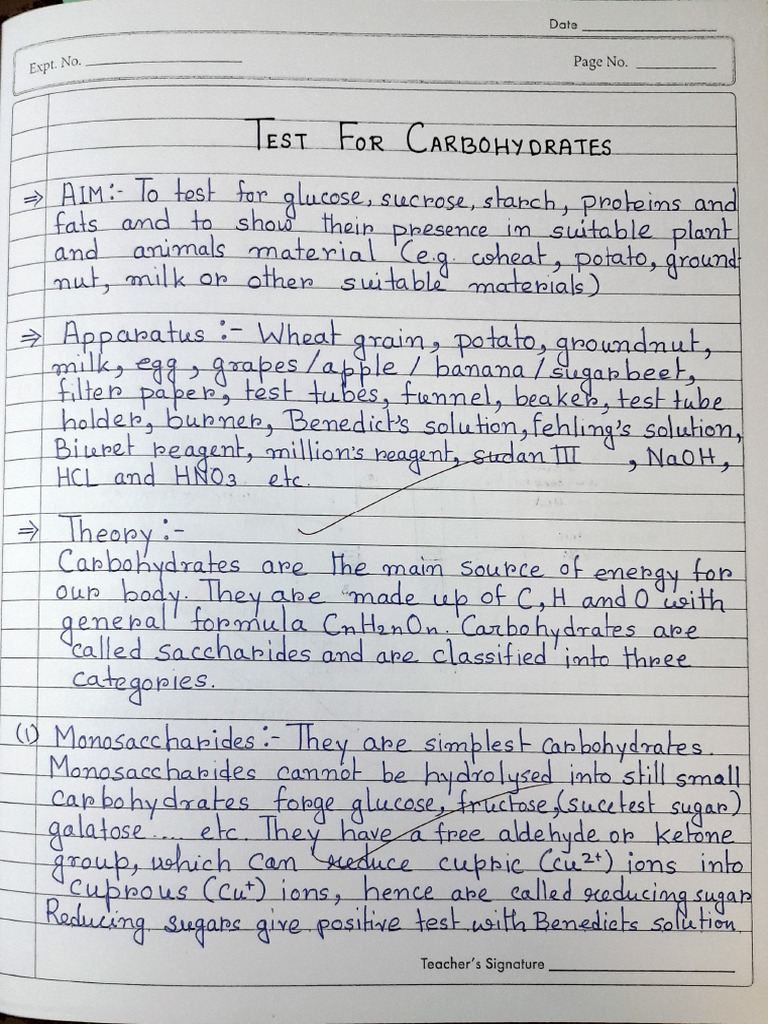 Date
Expt. No.
Page No.
TEST FOR CARBOHYDRATES
⇒ AIM:- To test for glucose, sucrose, starch, proteins and
fats and to show their presence in suitable plant
and animals material (e.g. wheat, potato, ground
nut, milk or other suitable materials)
⇒ Apparatus :- Wheat grain, potato, groundnut,
milk, egg, grapes/apple / banana/sugarbeet,
filter paper, test tubes, funnel, beaker, test tube
holder, burner, Benedict's solution, fehling's solution,
Biuret reagent, million's reagent, sudan III , NaOH,
HCL and HNO3 etc.
⇒ Theory:-
Carbohydrates are the main source of energy for
our body. They are made up of C, H and O with
general formula CnH2nOn. Carbohydrates are
called saccharides and are classified into three
categories.
(1) Monosaccharides:- They are simplest carbohydrates.
Monosaccharides cannot be hydrolysed into still small
carbohydrates forge glucose, fructose,(sucetest sugar)
galatose.... etc. They have a free aldehyde or ketone
group, which can reduce cupric (cu²⁺) ions into
cuprous (cu⁺) ions, hence are called reducing sugar
Reducing sugars give positive test with Benedicts solution.
Teacher's Signature